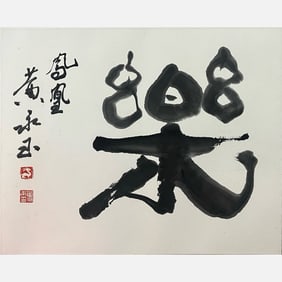 樂
鳳凰
黃永玉